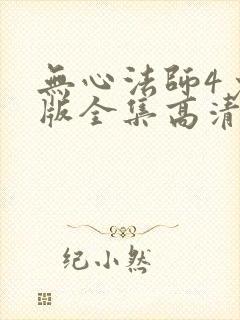 無心法師4
版全集高清
纪小然